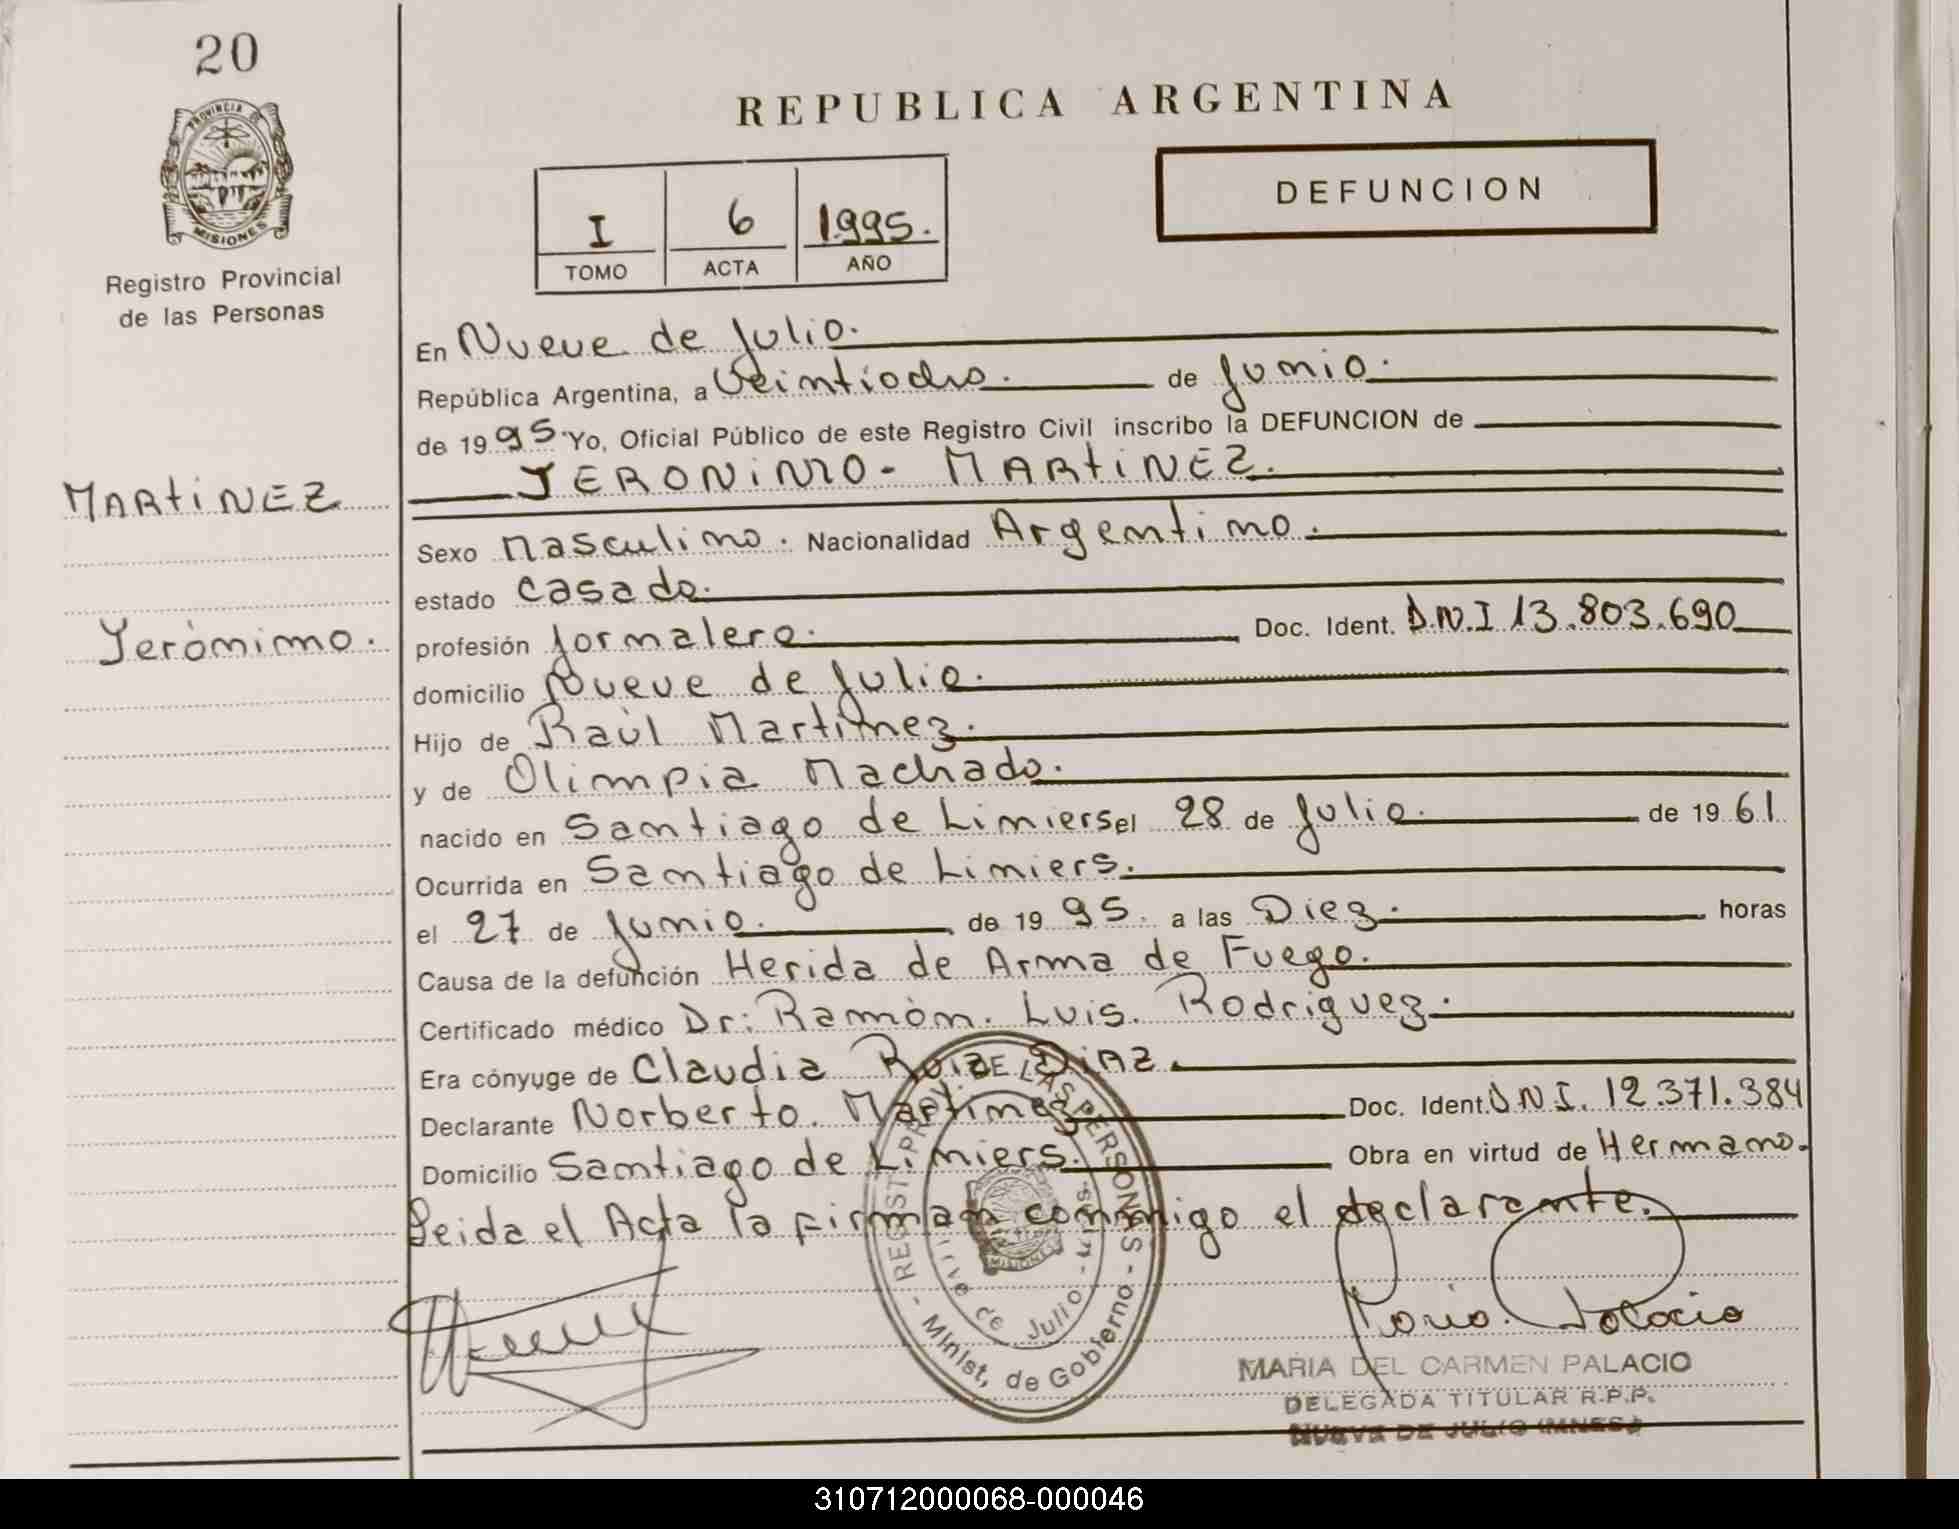 20
PROVINCIA DE
MISIONES
Registro Provincial
de las Personas
REPUBLICA ARGENTINA
I 6 1995.
TOMO ACTA AÑO
DEFUNCION
En Nueve de Julio.
República Argentina, a Veintiocho. de Junio.
de 1995. Yo, Oficial Público de este Registro Civil inscribo la DEFUNCION de
JERONIMO - MARTINEZ.
MARTINEZ
Sexo Masculino. Nacionalidad Argentino.
estado Casado.
Jerónimo.
profesión Jornalero. Doc. Ident. D.N.I 13.803.690
domicilio Nueve de Julio.
Hijo de Raúl Martínez.
y de Olimpia Machado.
nacido en Santiago de Liniers el 28 de Julio. de 1961
Ocurrida en Santiago de Liniers.
el 27 de Junio. de 1995. a las Diez. horas
Causa de la defunción Herida de Arma de Fuego.
Certificado médico Dr: Ramón. Luis. Rodriguez.
Era cónyuge de Claudia Ruiz DiAZ.
Declarante Norberto. Martínez Doc. Ident. D.N.I. 12.371.384
Domicilio Santiago de Liniers. Obra en virtud de Hermano.
Leida el Acta la firman conmigo el declarante.
REGIST. PROV. DE LAS PERSONAS
Minist, de Gobierno
de Julio
MISIONES
María Palacio
MARIA DEL CARMEN PALACIO
DELEGADA TITULAR R.P.P.
NUEVE DE JULIO (MNES)
310712000068-000046